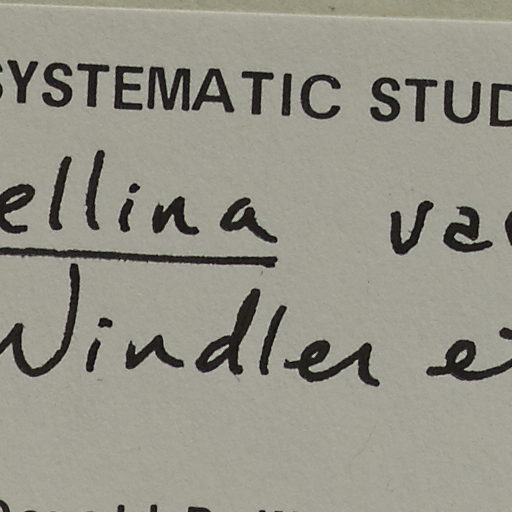 SYSTEMATIC STUD
ellina va
Windler e